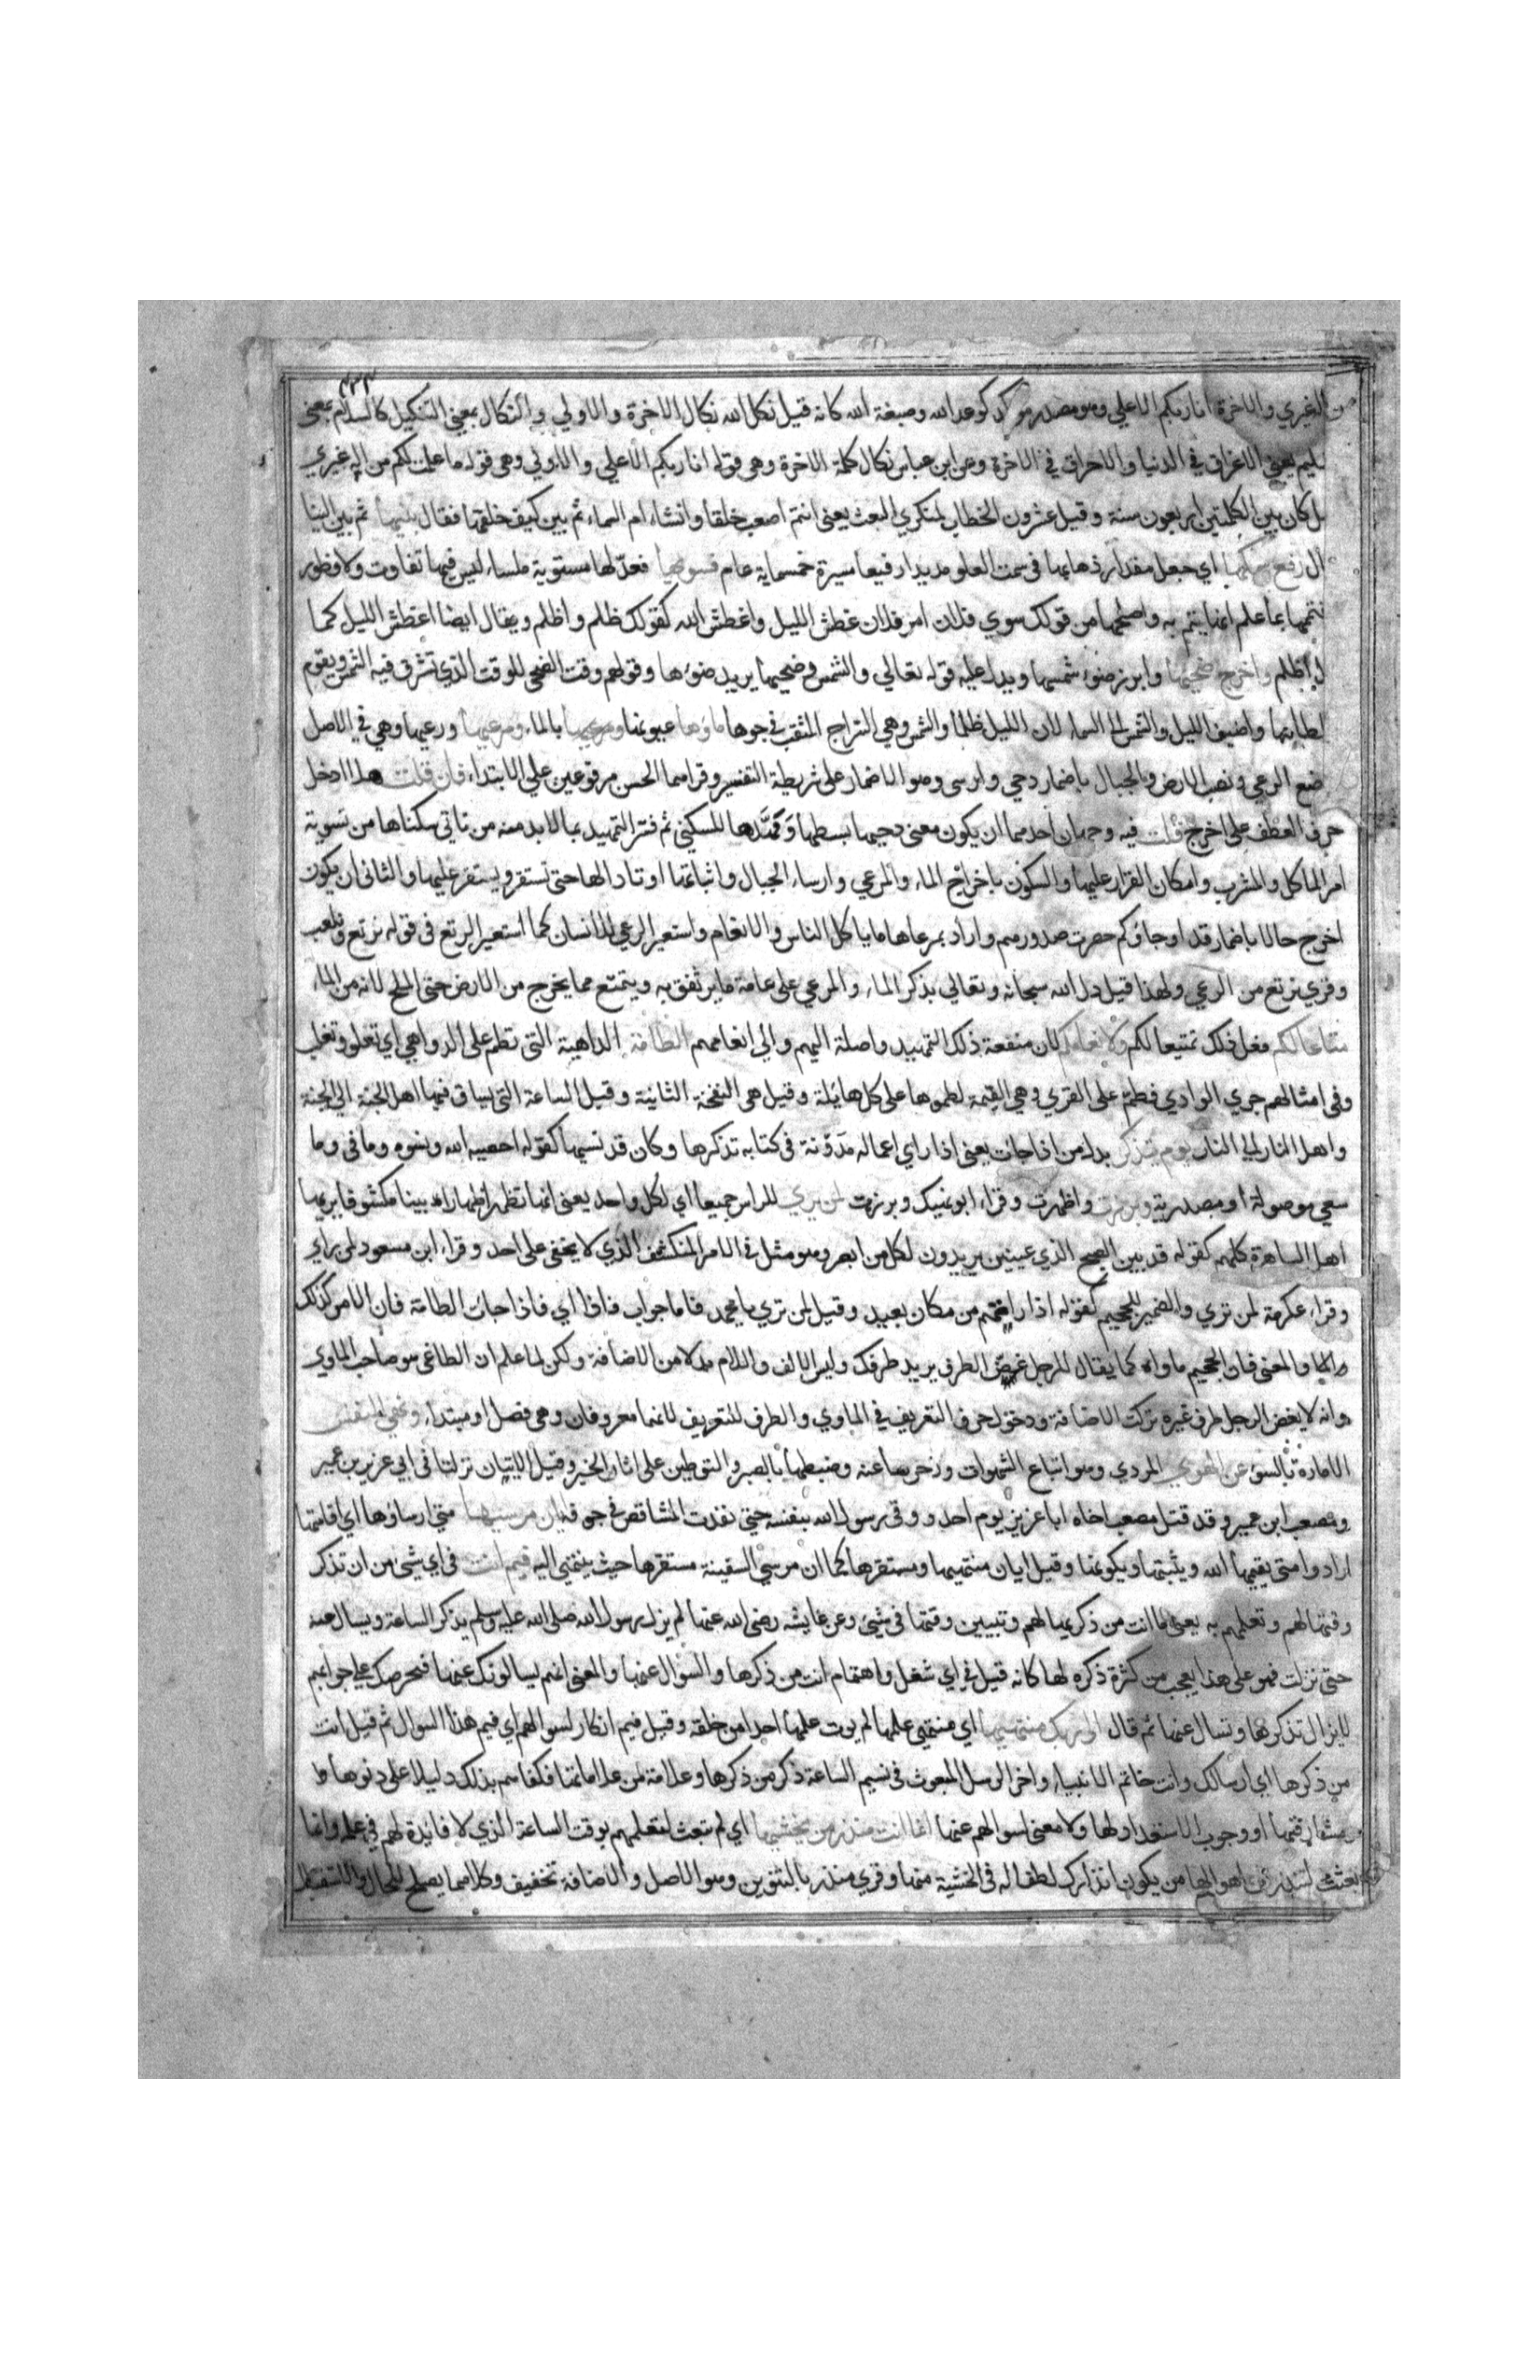 ٤٣٣
من اله غيري والاخرة انا ربكم الاعلي وهو مصدر موكد كوعد الله وصبغة الله كانه قيل نكل الله نكال الاخرة والاولي والنكال بمعني التنكيل كالسلام بمعني
التسليم يعني الاغراق في الدنيا والاحراق في الاخرة وعن ابن عباس نكال كلمة الاخرة وهي قوله انا ربكم الاعلي والاولي وهي قوله ما علمت لكم من اله غيري
كان بين الكلمتين اربعون سنة وقيل عشرون الخطاب لمنكري البعث يعني اانتم اصعب خلقا وانشاء ام السماء ثم بين كيف خلقها فقال بنيها ثم بين البنا
رفع سمكها اي جعل مقدار ذهابها في سمت العلو مديدا رفيعا مسيرة خمسماية عام فسوىها فعدّلها مستوية ملساء ليس فيها تفاوت ولا فطور
فتممها بما علم انها يتم به واصلحها من قولك سوي فلان امر فلان غطش الليل واغطش الله كقولك ظلم واظلم ويقال ايضا اغطش الليل كما
يقال اظلم واخرج ضحيها وابرز ضوء شمسها ويدل عليه قوله تعالي والشمس وضحيها يريد ضوءها وقولهم وقت الضحي للوقت الذي تشرق فيه الشمس ويقوم
سلطانها واضيف الليل والشمس الي السماء لان الليل ظلها والشمس وهي السراج المثقب في جوها ماؤها عيونها ومرعيها بالماء ومرعيها ورعيها وهي في الاصل
موضع الرعي ونصب الارض والجبال باضمار دحي وارسي وهو الاضمار علي شريطة التفسير وقراهما الحسن مرفوعين علي الابتداء فان قلت هلا ادخل
حرف العطف علي اخرج قلت فيه وجهان احدهما ان يكون معني دحيها بسطها ومَهَّدها للسكني ثم فسّر التمهيد بما لا بد منه من تاتي سكناها من تسوية
امر الماكل والمشرب وامكان القرار عليها والسكون باخراج الماء والمرعي وارساء الجبال واثباتها اوتادا لها حتي تستقر ويستقر عليها والثاني ان يكون
اخرج حالا باضمار قد او جاؤكم حصرت صدورهم واراد بمرعاها ما ياكل الناس والانعام واستعير الرعي للانسان كما استعير الرتع في قوله نرتع ونلعب
وقري نرتع من الرعي ولهذا قيل دل الله سبحانه وتعالي بذكر الماء والمرعي علي عامة ما يرتفق به ويتمتع مما يخرج من الارض حتي الملح لانه من الماء
متاعا لكم فعل ذلك تمتيعا لكم ولانعامكم لان منفعة ذلك التمهيد واصلة اليهم والي انعامهم الطامة الداهية التي تطم علي الدواهي اي تعلو وتغلب
وفي امثالهم جري الوادي فطم علي القري وهي القيمة لطمومها علي كل هايلة وقيل هي النفخة الثانية وقيل الساعة التي يساق فيها اهل الجنة الي الجنة
واهل النار الي النار يوم يتذكر بدل من اذا جات يعني اذا راي اعماله مدوّنة في كتابه تذكرها وكان قد نسيها كقوله احصيه الله ونسوه وما في وما
سعي موصولة او مصدرية وبرزت واظهرت وقراء ابو نهيك وبرزت لمن يري للراس جميعا اي لكل واحد يعني انها تظهر اظهارا بينا مكشوفا يريها
اهل الساهرة كلهم كقوله قد بين الصبح الذي عينين يريدون لكل من ابصر وهو مثل في الامر المنكشف الذي لا يخفي علي احد وقراء ابن مسعود لمن يراي
وقراء عكرمة لمن تري والضمير للجحيم كقوله اذا راتهم من مكان بعيد وقيل لمن تري يا محمد فاما جواب فاذا اي فاذا جات الطامة فان الامر كذلك
والمعني فان الجحيم ماواه كما يقال للرجل غض الطرف يريد طرفك وليس الالف واللام بدلا من الاضافة ولكن لما علم ان الطاغي هو صاحب الماوي
وانه لا يغض الرجل طرف غيره تركت الاضافة ودخول حرف التعريف في الماوي والطرف للتعريف لانهما معروفان وهي فصل او مبتداء ونهي النفس
الامارة بالسوء عن الهوي المردي وهو اتباع الشهوات وزجرها عنه وضبطها بالصبر والتوطين علي ايثار الخير وقيل الايتان نزلتا في ابي عزيز بن عمير
ومصعب ابن عمير وقد قتل مصعب اخاه ابا عزيز يوم احد ووقي رسول الله بنفسه حتي نفذت المشاقص في جوفه ايان مرسيها متي ارساؤها اي اقامتها
ارادوا متي يقيمها الله ويثبتها ويكونها وقيل ايان منتهيها ومستقرها كما ان مرسي السفينة مستقرها حيث ينتهي اليه فيم انت في اي شئ من ان تذكر
وقتها لهم وتعلمهم به يعني ما انت من ذكريها لهم وتبيين وقتها في شئ وعن عايشه رضي الله عنها لم يزل رسول الله صلي الله عليه وسلم يذكر الساعة ويسال عنها
حتي نزلت فهو علي هذا يعجب من كثرة ذكره لها كانه قيل في اي شغل واهتمام انت من ذكرها والسوال عنها والمعني انهم يسالونك عنها فحرصك علي جوابهم
لا يزال تذكرها وتسال عنها ثم قال الي ربك منتهيها اي منتهي علمها لم يوت علمها احدا من خلقه وقيل فيم انكار لسوالهم اي فيم هذا السوال ثم قيل انت
من ذكرها اي ارسالك وانت خاتم الانبياء واخر الرسل المبعوث في نسيم الساعة ذكر من ذكرها وعلامة من علاماتها فكفاهم بذلك دليلا علي دنوها
ومشارفتها او وجوب الاستعداد لها ولا معني لسوالهم عنها انما انت منذر من يخشيها اي لم تبعث لتعلمهم بوقت الساعة الذي لا فايدة لهم في علمه وانما
بعثت لتنذر من اهوالها من يكون انذارك لطفا له في الخشية منها وقري منذر بالتنوين وهو الاصل والاضافة تخفيف وكلاهما يصلح للحال والاستقبال